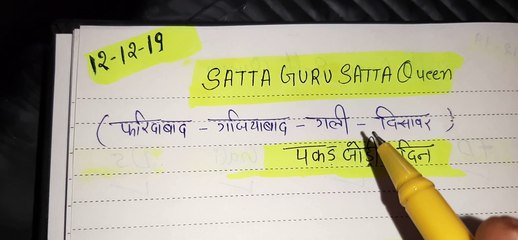 12-12-19
SATTA GURU SATTA Queen
( फरिदाबाद - गजियाबाद - गली - दिसावर )
पकड जोड़ी दिन